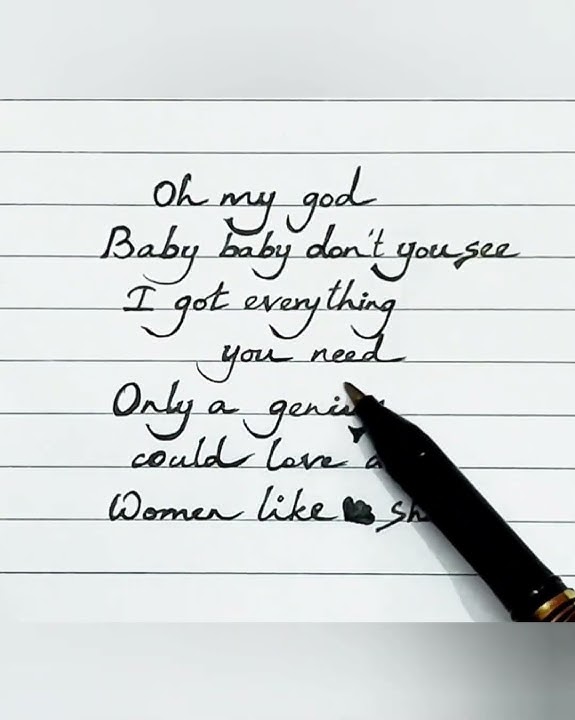 Oh my god
Baby baby don't you see
I got everything
you need
Only a genius
could love a
Women like